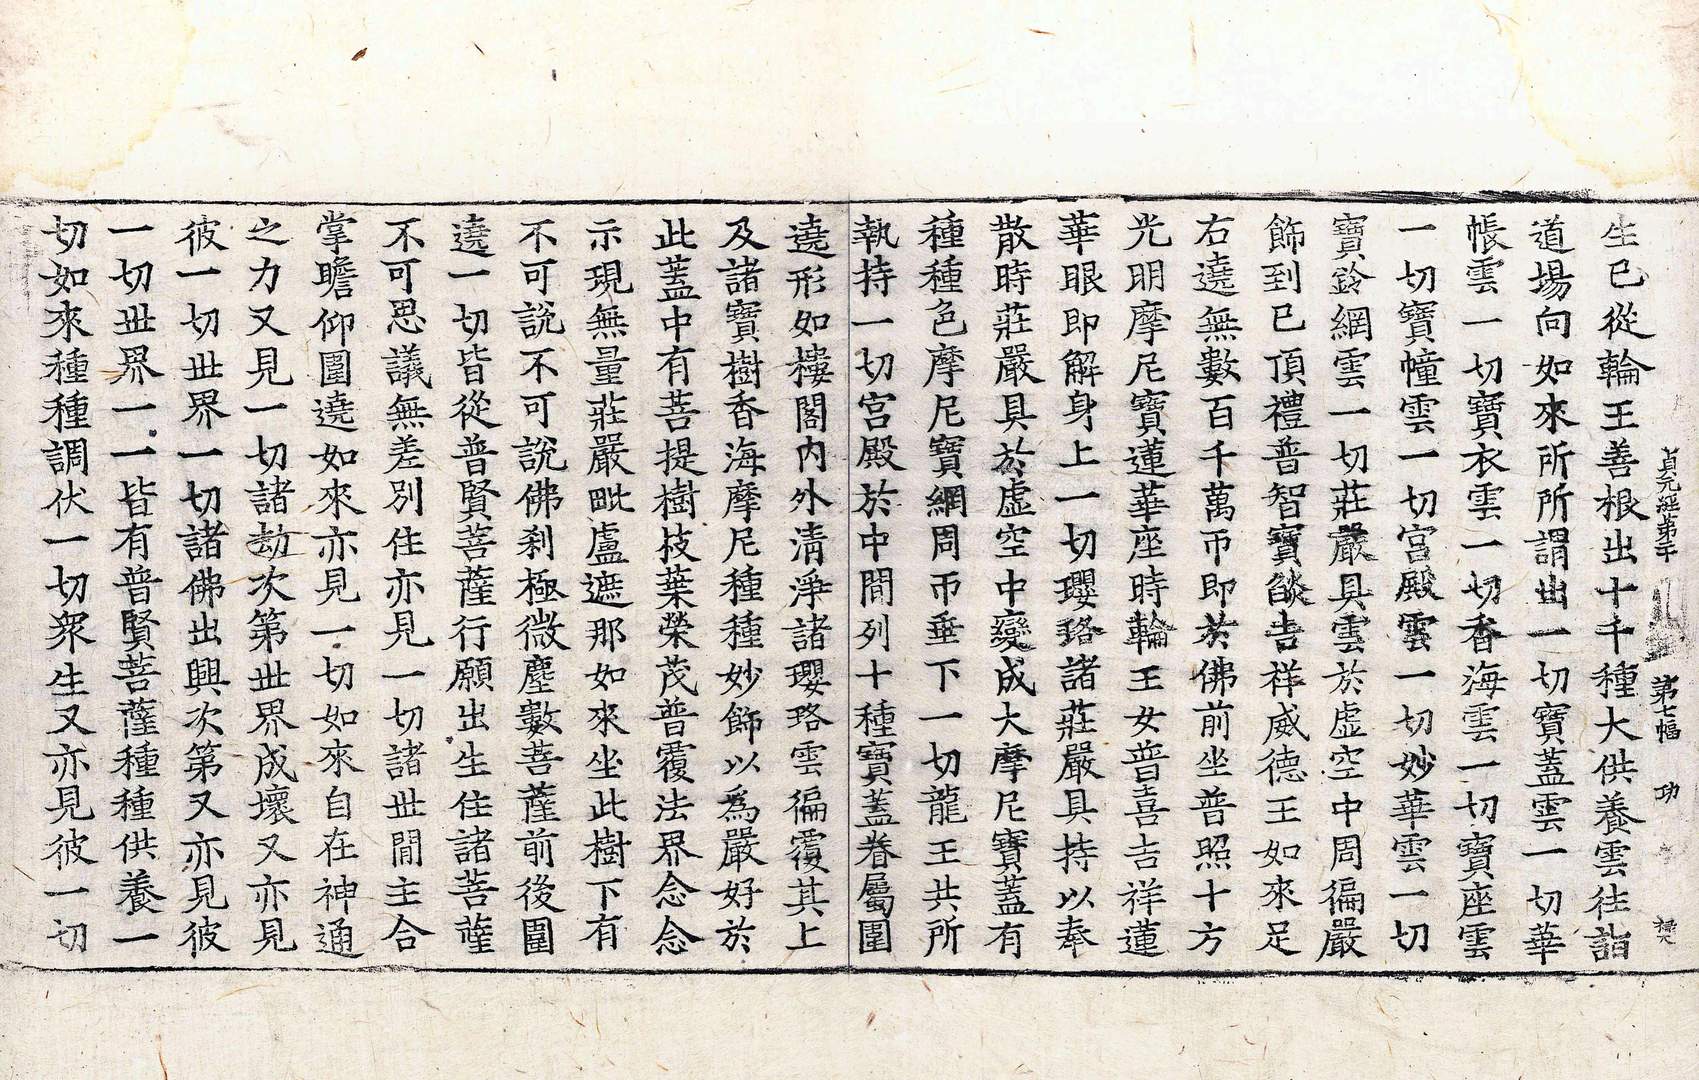 貞元經第二十 第七幅 功
生已從輪王善根出十千種大供養雲往詣
道場向如來所所謂出一切寶蓋雲一切華
帳雲一切寶衣雲一切香海雲一切寶座雲
一切寶幢雲一切宮殿雲一切妙華雲一切
寶鈴網雲一切莊嚴具雲於虛空中周徧嚴
飾到已頂禮普智寶燄吉祥威德王如來足
右遶無數百千萬帀即於佛前坐普照十方
光明摩尼寶蓮華座時輪王女普喜吉祥蓮
華眼即解身上一切瓔珞諸莊嚴具持以奉
散時莊嚴具於虛空中變成大摩尼寶蓋有
種種色摩尼寶網周帀垂下一切龍王共所
執持一切宮殿於中間列十種寶蓋眷屬圍
遶形如樓閣內外清淨諸瓔珞雲徧覆其上
及諸寶樹香海摩尼種種妙飾以為嚴好於
此蓋中有菩提樹枝葉榮茂普覆法界念念
示現無量莊嚴毗盧遮那如來坐此樹下有
不可說不可說佛剎極微塵數菩薩前後圍
遶一切皆從普賢菩薩行願出生住諸菩薩
不可思議無差別住亦見一切諸世間主合
掌瞻仰圍遶如來亦見一切如來自在神通
之力又見一切諸劫次第世界成壞又亦見
彼一切世界一切諸佛出興次第又亦見彼
一切世界一一皆有普賢菩薩種種供養一
切如來種種調伏一切眾生又亦見彼一切